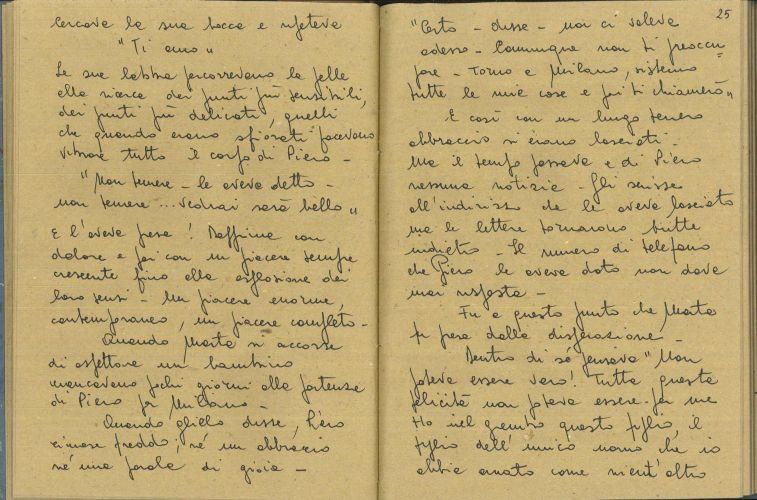 cercava la sua bocca e ripeteva
"Ti amo"
Le sue labbra percorrevano la pelle
alla ricerca dei punti più sensibili,
dei punti più delicati, quelli
che quando erano sfiorati facevano
vibrare tutto il corpo di Piero -
"Non temere - le aveva detto -
non temere ... vedrai sarà bello"
E l'aveva presa! Dapprima con
dolore e poi con un piacere sempre
crescente fino alla esplosione dei
loro sensi - Un piacere enorme,
contemporaneo, un piacere completo -
Quando Marta si accorse
di aspettare un bambino
mancavano pochi giorni alla partenza
di Piero per Milano -
Quando glielo disse, Piero
rimase freddo; né un abbraccio
né una parola di gioia -
25
"Certo - disse - non ci voleva
adesso - Comunque non ti preoccu-
pare - Torno a Milano, sistemo
tutte le mie cose e poi ti chiamerò"
E così con un lungo tenero
abbraccio si erano lasciati -
Ma il tempo passava e di Piero
nessuna notizia - Gli scrisse
all'indirizzo che le aveva lasciato
ma le lettere tornarono tutte
indietro - Il numero di telefono
che Piero le aveva dato non dava
mai risposta -
Fu a questo punto che Marta
fu presa dalla disperazione -
Dentro di sé pensava "Non
poteva essere vero! Tutta questa
felicità non poteva essere per me
Ho nel grembo questo figlio, il
figlio dell'unico uomo che io
abbia amato come nient'altro